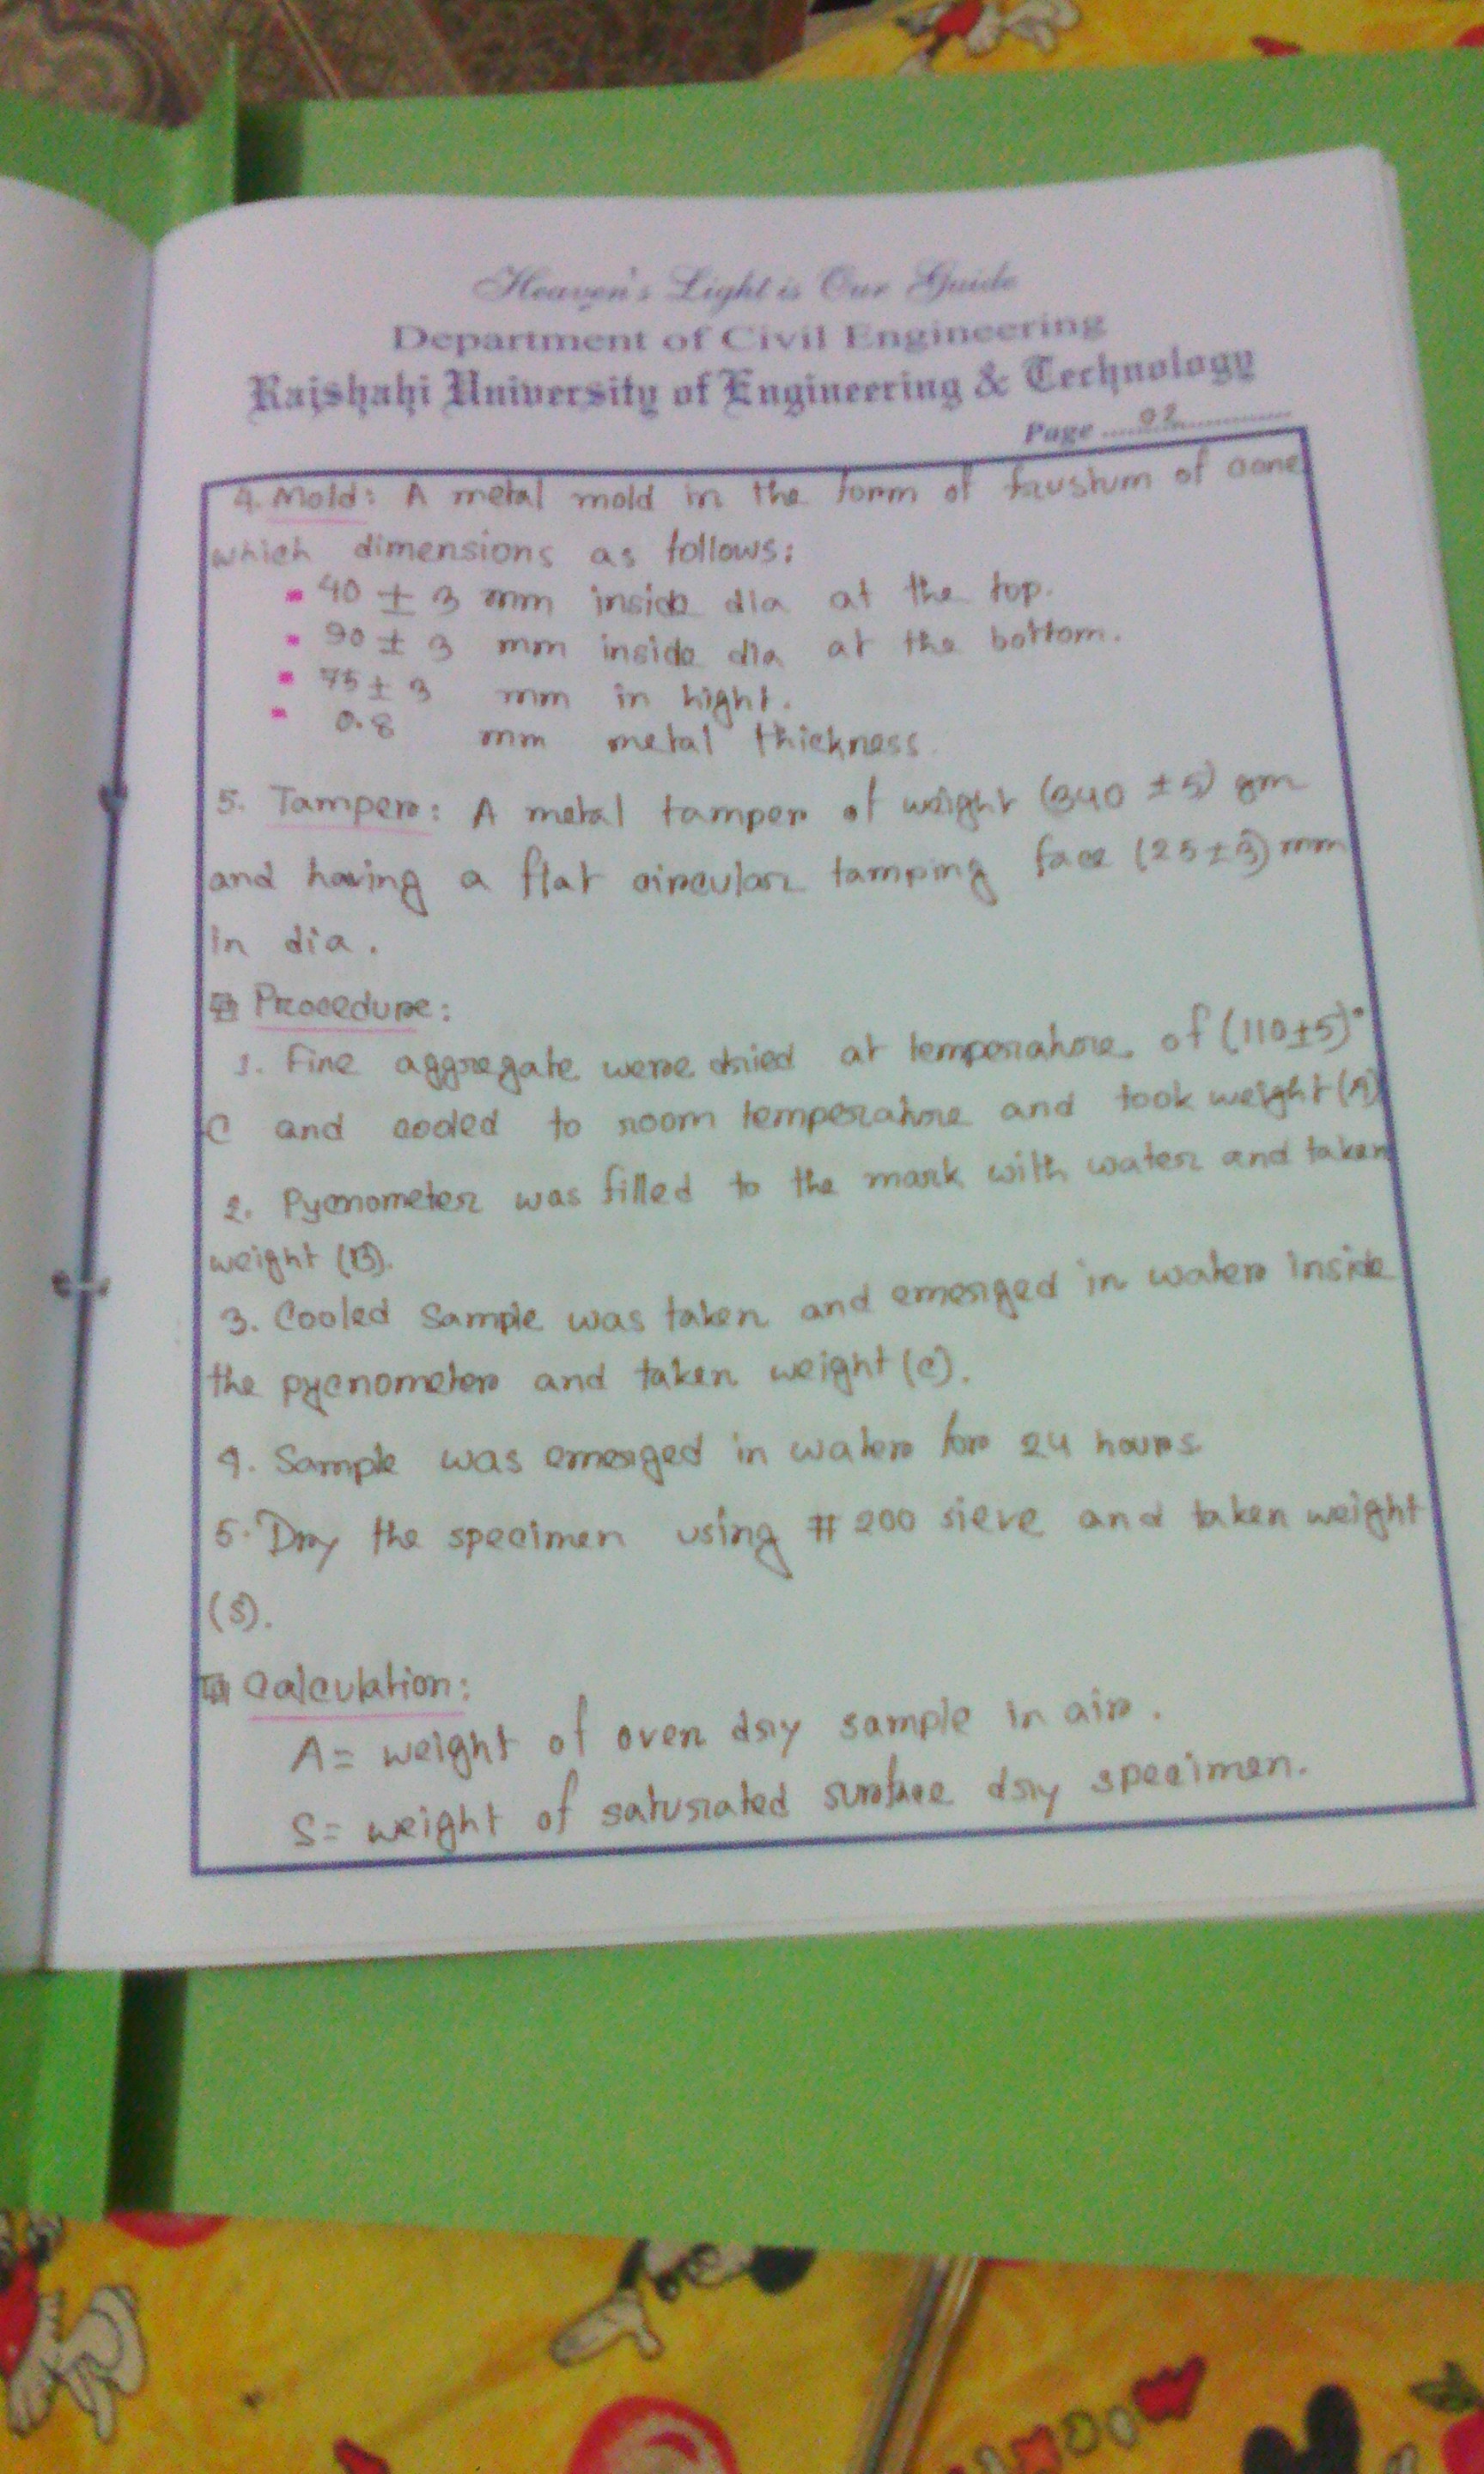 Heaven's Light is Our Guide
Department of Civil Engineering
Rajshahi University of Engineering & Technology
Page ......02..............
4. Mold: A metal mold in the form of frustum of cone
which dimensions as follows:
▪ 40 ± 3 mm inside dia at the top.
▪ 90 ± 3 mm inside dia at the bottom.
▪ 75 ± 3 mm in hight.
▪ 0.8 mm metal thickness.
5. Tamper: A metal tamper of weight (340 ±5) gm
and having a flat circular tamping face (25±3) mm
in dia.
Procedure:
1. Fine aggregate were dried at temperature of (110±5)°
C and cooled to room temperature and took weight (A)
2. Pycnometer was filled to the mark with water and taken
weight (B).
3. Cooled sample was taken and emerged in water inside
the pycnometer and taken weight (C).
4. Sample was emerged in water for 24 hours.
5. Dry the specimen using #200 sieve and taken weight
(S).
Calculation:
A= weight of oven dry sample in air.
S= weight of saturated surface dry specimen.